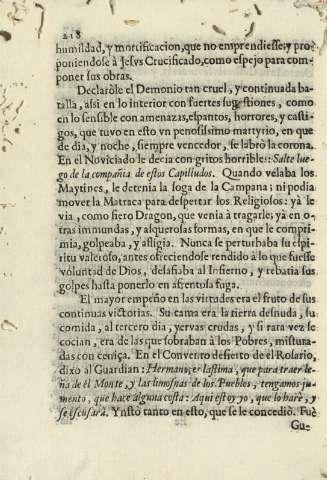 218
humildad, y mortificacion, que no emprendiesse, y pro-
poniendose à Jesvs Crucificado, como espejo para com-
poner sus obras.
Declaròle el Demonio tan cruel, y continuada ba-
talla, assi en lo interior con fuertes sugestiones, como
en lo sensible con amenazas, espantos, horrores, y casti-
gos, que tuvo en esto, vn penosissimo martyrio, en que
de dia, y noche, siempre vencedor, se labrò la corona.
En el Noviciado le decia con gritos horribles: Salte lue-
go de la compañia de estos Capilludos. Quando vèlaba los
Maytines, le detenia la soga de la Campana; ni podia
mover la Matraca para despertar los Religiosos: yà le
via, como fiero Dragon, que venia à tragarle; yà en o-
tras immundas, y asquerosas formas, en que le compri-
mia, golpeaba, y afligia. Nunca se perturbaba su espi-
ritu valeroso, antes ofreciendose rendido à lo que fuesse
voluntad de Dios, desafiaba al Infierno, y rebatia sus
golpes hasta ponerlo en afrentosa fuga.
El mayor empeño en las virtudes era el fruto de sus
continuas victorias. Su cama era la tierra desnuda, su
comida, al tercero dia, yervas crudas, y si rara vez se
cocian, era de las que sobraban à los Pobres, mistura-
das con ceniça. En el Convento desierto de el Rosario,
dixo al Guardian: Hermano, es lastima, que para traer le-
ña de el Monte, y las limosnas de los Pueblos, tengamos ju-
mento, que hace alguna costa: Aqui estoy yo, que lo harè, y
se escusarà. Ynstò tanto en esto, que se le concediò. Fuè
Gu-